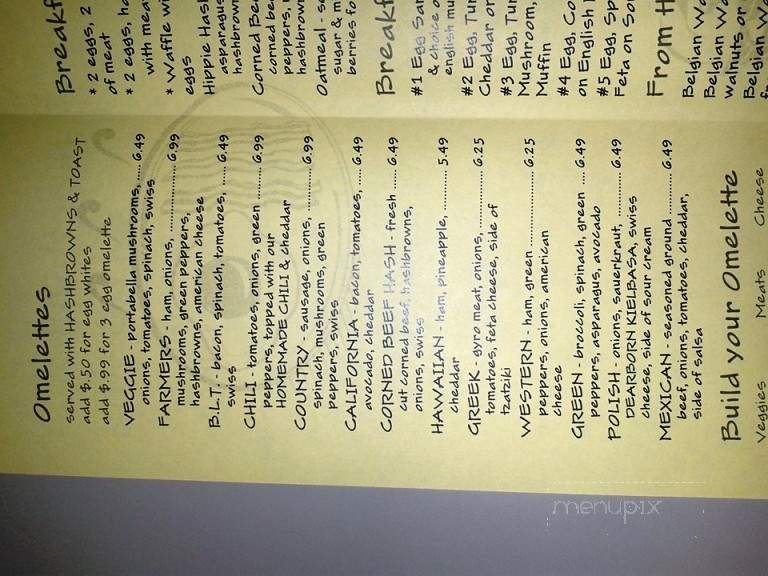 Omelettes
served with HASHBROWNS & TOAST
add $.50 for egg whites
add $.99 for 3 egg omelette
VEGGIE - portabella mushrooms, ..... 6.49
onions, tomatoes, spinach, swiss
FARMERS - ham, onions, ................. 6.99
mushrooms, green peppers,
hashbrowns, american cheese
B.L.T. - bacon, spinach, tomatoes, ..... 6.49
swiss
CHILI - tomatoes, onions, green ........ 6.99
peppers, topped with our
HOMEMADE CHILI & cheddar
COUNTRY - sausage, onions, ............ 6.99
spinach, mushrooms, green
peppers, swiss
CALIFORNIA - bacon, tomatoes, ...... 6.49
avocado, cheddar
CORNED BEEF HASH - fresh ..... 6.49
cut corned beef, hashbrowns,
onions, swiss
HAWAIIAN - ham, pineapple, .......... 5.49
cheddar
GREEK - gyro meat, onions, ............ 6.25
tomatoes, feta cheese, side of
tzatziki
WESTERN - ham, green ................. 6.25
peppers, onions, american
cheese
GREEN - broccoli, spinach, green ..... 6.49
peppers, asparagus, avocado
POLISH - onions, sauerkraut, .......... 6.49
DEARBORN KIELBASA, swiss
cheese, side of sour cream
MEXICAN - seasoned ground ......... 6.49
beef, onions, tomatoes, cheddar,
side of salsa
Build your Omelette
Veggies Meats Cheese
* 2 eggs, 2
of meat
* 2 eggs,
with meat
* Waffle
eggs
Hippie
asparagus
hashbrown
Corned
corned
peppers,
hashbrown
Oatmeal -
sugar &
berries
#1 Egg
& choice
english
#2 Egg,
Cheddar or
#3 Egg,
Mushroom,
Muffin
#4 Egg,
on English
#5 Egg,
Feta on
From
Belgian
Belgian
walnuts or
Belgian
menupix